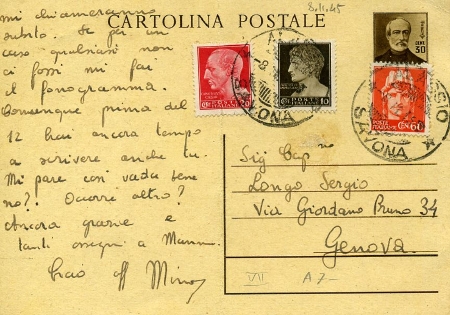 CARTOLINA POSTALE
8.11.45
mi chiameranno
subito. Se per un
caso qualsiasi non
ci fossi mi fai
il fonogramma.
Comunque prima del
12 hai ancora tempo
a scrivere anche tu.
Mi pare così vada bene
no?! Occorre altro?
Ancora grazie e
tanti ossequi a Mamma.
Ciao
CENT. 30
20
10
POSTE ITALIANE CENT. 60
SAVONA
SAVONA
Sig Cap
Longo Sergio
Via Giordano Bruno 34
Genova
VII
A 7-